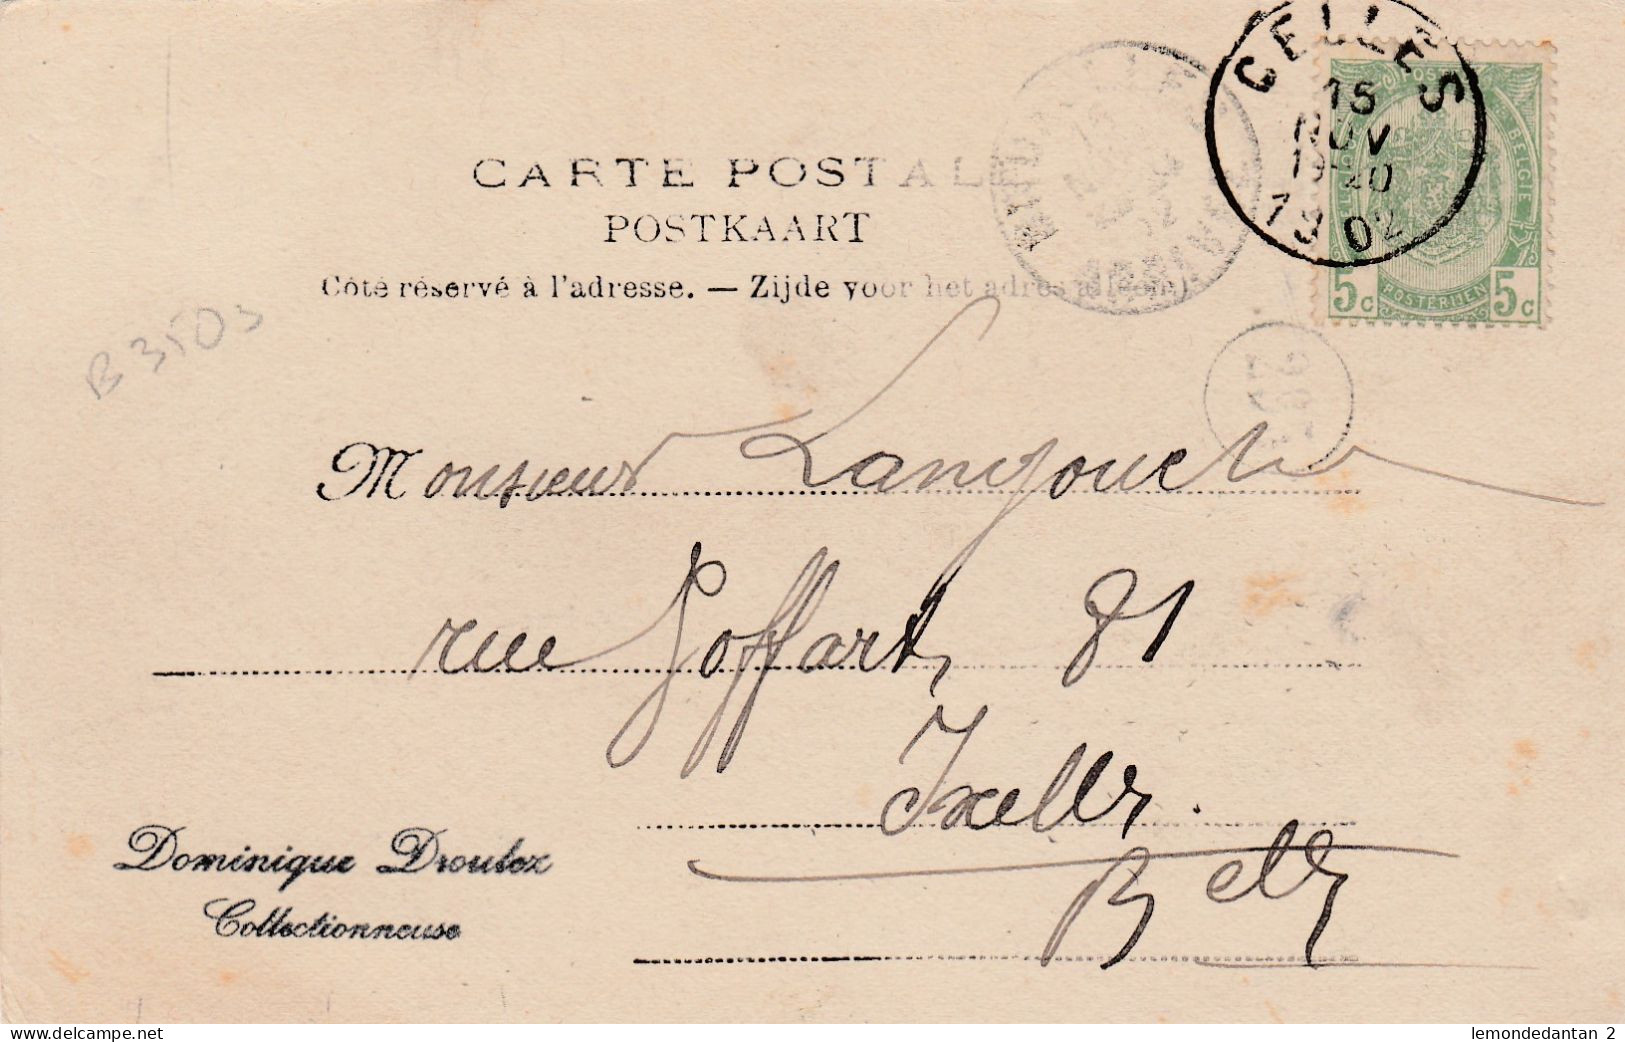 CELLES
15
NOV
19-20
1902
BELGIE
5c POSTERIJEN 5c
CARTE POSTALE
POSTKAART
Côté réservé à l'adresse. — Zijde voor het adres
B 3503
Monsieur Langouche
rue Goffart, 81
Ixelles.
Dominique Droulez
Collectionneuse
www.delcampe.net
lemondedantan 2